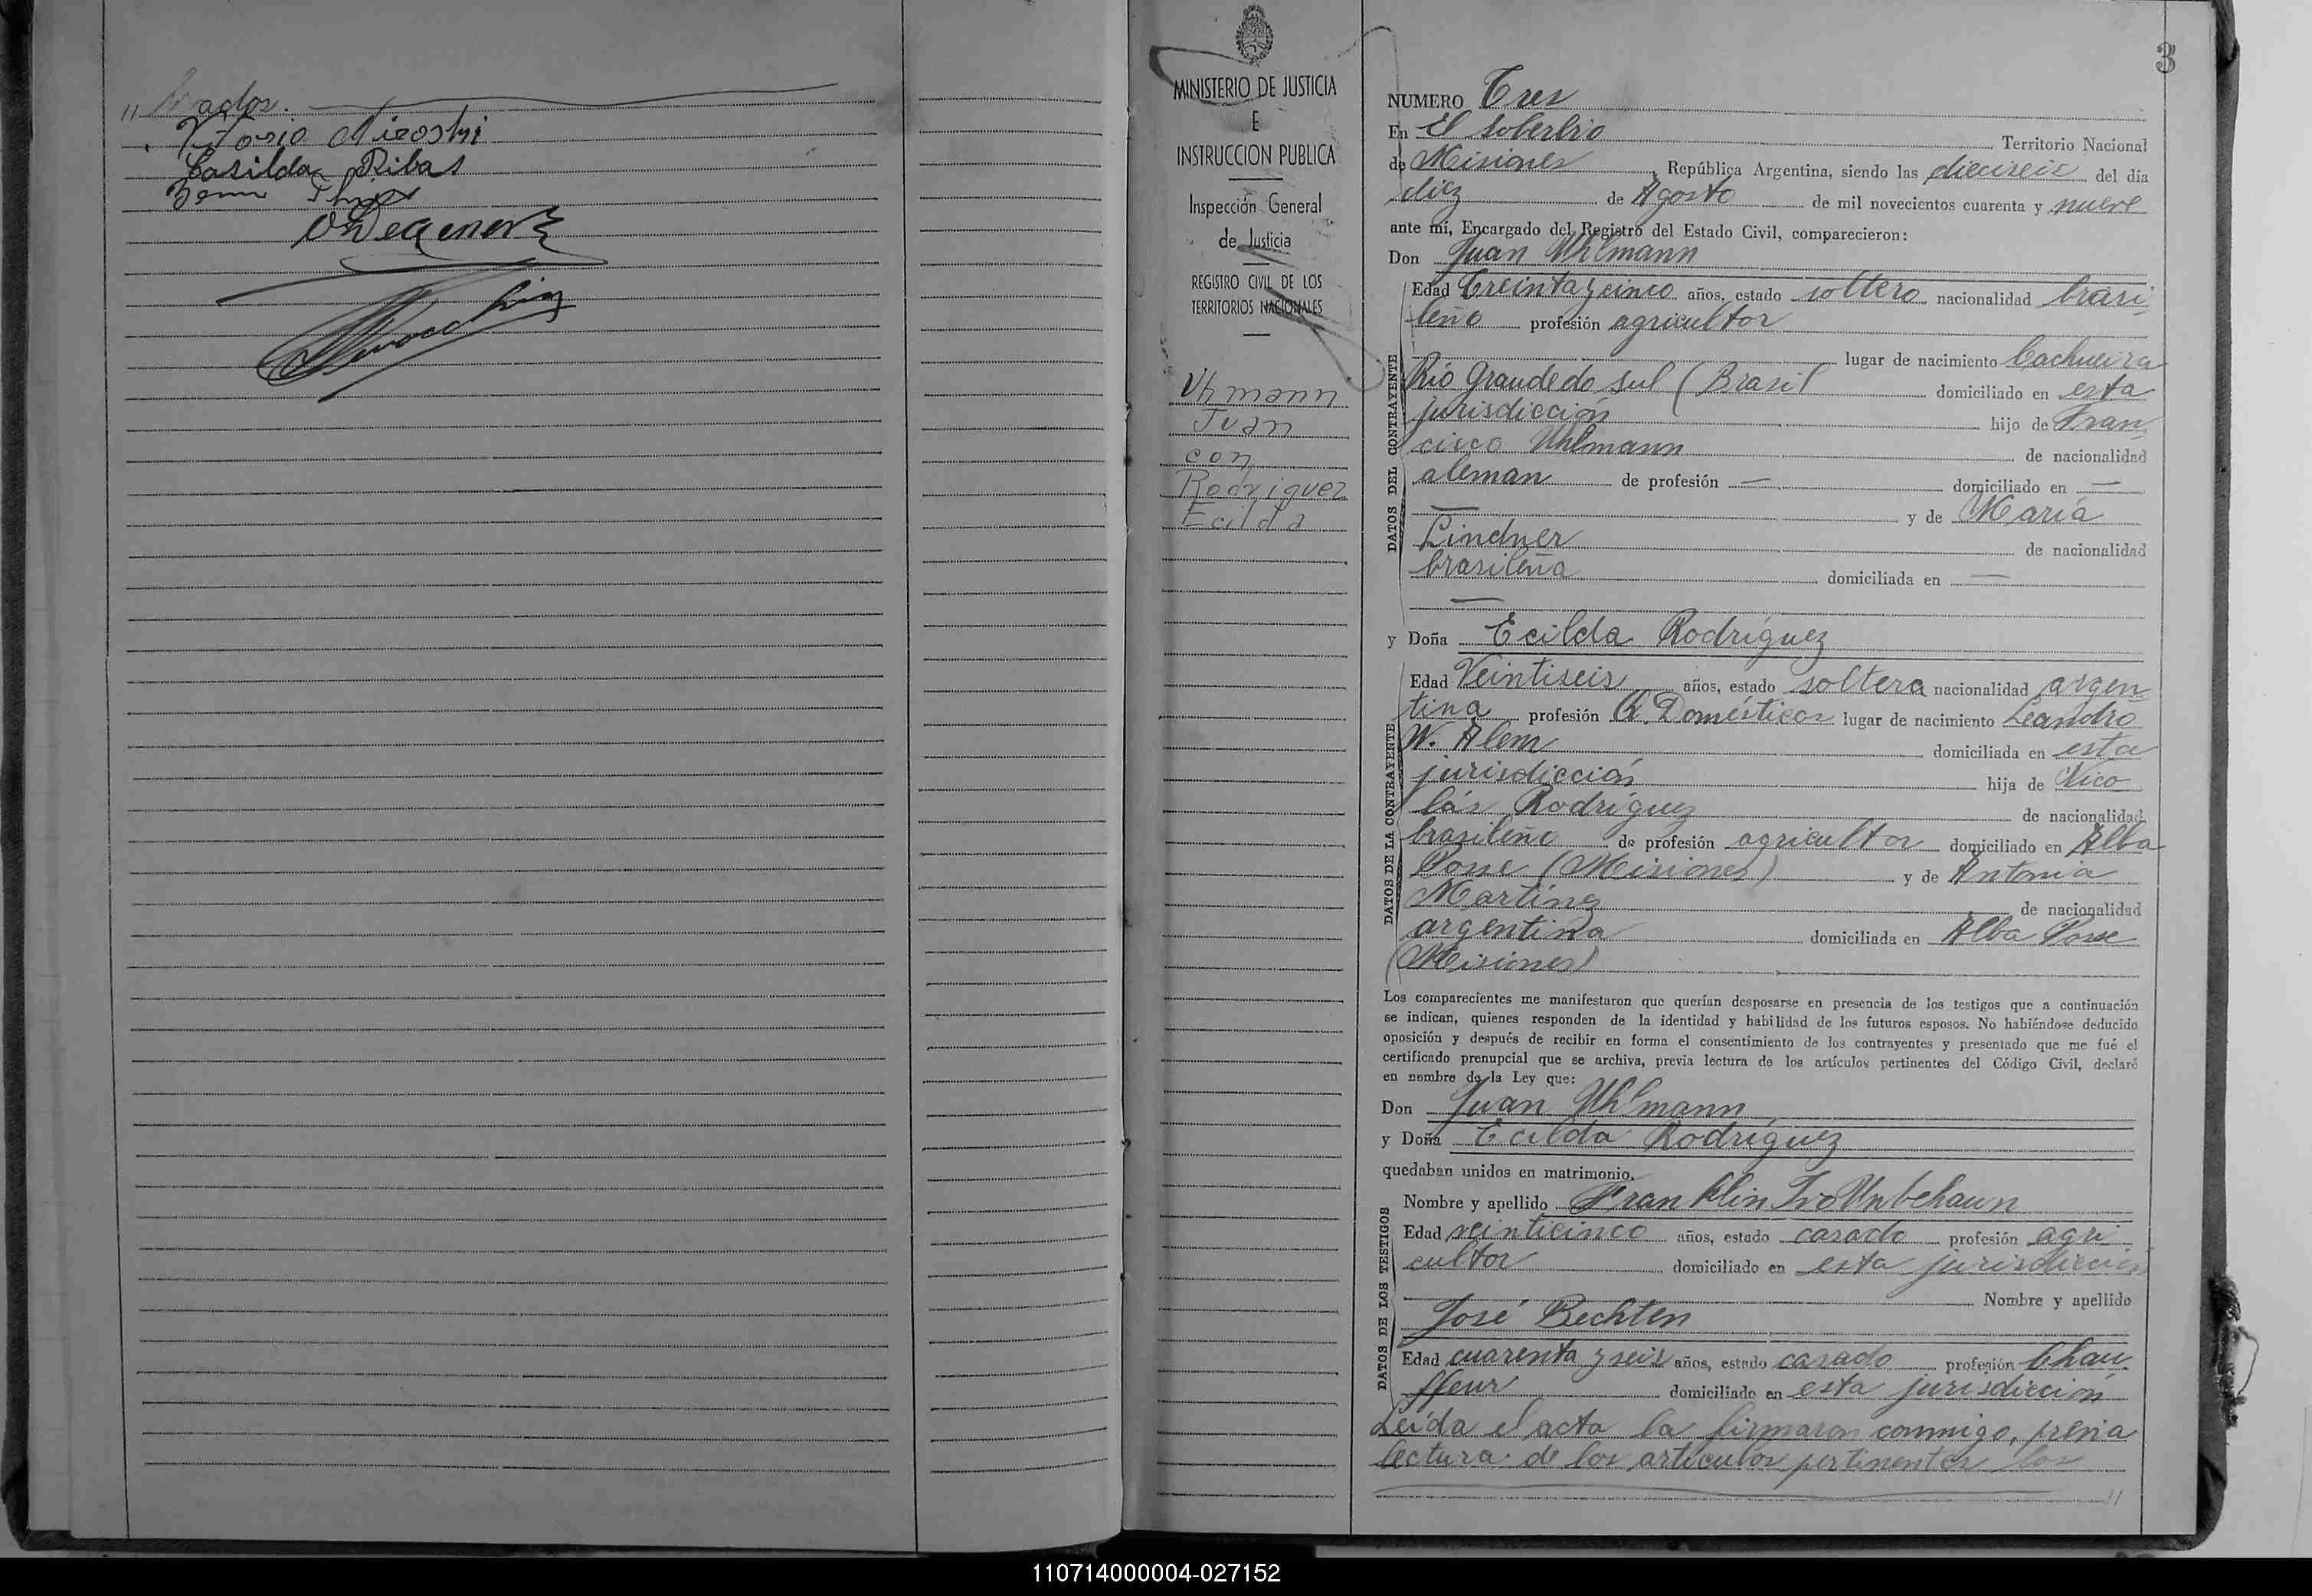 Casilda Ribas
MINISTERIO DE JUSTICIA
E
INSTRUCCION PUBLICA
Inspección General
de Justicia
REGISTRO CIVIL DE LOS
TERRITORIOS NACIONALES
Uhmann
Juan
con
Rodriguez
Ecilda
3
NUMERO Tres
En El Soberbio Territorio Nacional
de Misiones, República Argentina, siendo las dieciseis del día
diez de Agosto de mil novecientos cuarenta y nueve
ante mí, Encargado del Registro del Estado Civil, comparecieron:
Don Juan Uhlmann
DATOS DEL CONTRAYENTE
Edad Treinta y cinco años, estado soltero nacionalidad brasi
leño profesión agricultor
lugar de nacimiento Cachueira
Rio Grande do Sul (Brasil domiciliado en esta
jurisdicción hijo de Fran
cisco Uhlmann de nacionalidad
aleman de profesión — domiciliado en —
— y de María
Lindner de nacionalidad
brasileña domiciliada en —
—
y Doña Ecilda Rodríguez
DATOS DE LA CONTRAYENTE
Edad Veintiseis años, estado soltera nacionalidad argen
tina profesión Q. Domésticos lugar de nacimiento Leandro
N. Alem domiciliada en esta
jurisdicción hija de Nico
lás Rodríguez de nacionalidad
brasileño de profesión agricultor domiciliado en Alba
Posse (Misiones) y de Antonia
Martínez de nacionalidad
argentina domiciliada en Alba Posse
(Misiones)
Los comparecientes me manifestaron que querían desposarse en presencia de los testigos que a continuación
se indican, quienes responden de la identidad y habilidad de los futuros esposos. No habiéndose deducido
oposición y después de recibir en forma el consentimiento de los contrayentes y presentado que me fué el
certificado prenupcial que se archiva, previa lectura de los artículos pertinentes del Código Civil, declaré
en nombre de la Ley que:
Don Juan Uhlmann
y Doña Ecilda Rodríguez
quedaban unidos en matrimonio.
DATOS DE LOS TESTIGOS
Nombre y apellido Franklin Ivo Unbehaun
Edad veinticinco años, estado casado profesión agri
cultor domiciliado en esta jurisdicción
Nombre y apellido
José Bechten
Edad cuarenta y seis años, estado casado profesión Chau
ffeur domiciliado en esta jurisdicción
Leída el acta la firmaron conmigo, previa
lectura de los artículos pertinentes los
//
110714000004-027152